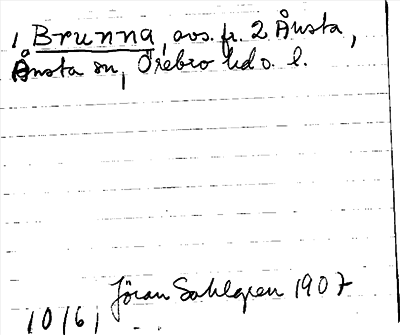 1 Brunna, avs. fr. 2 Ånsta,
Ånsta sn, Örebro hd o. l.
Jöran Sahlgren 1907
10/6 |